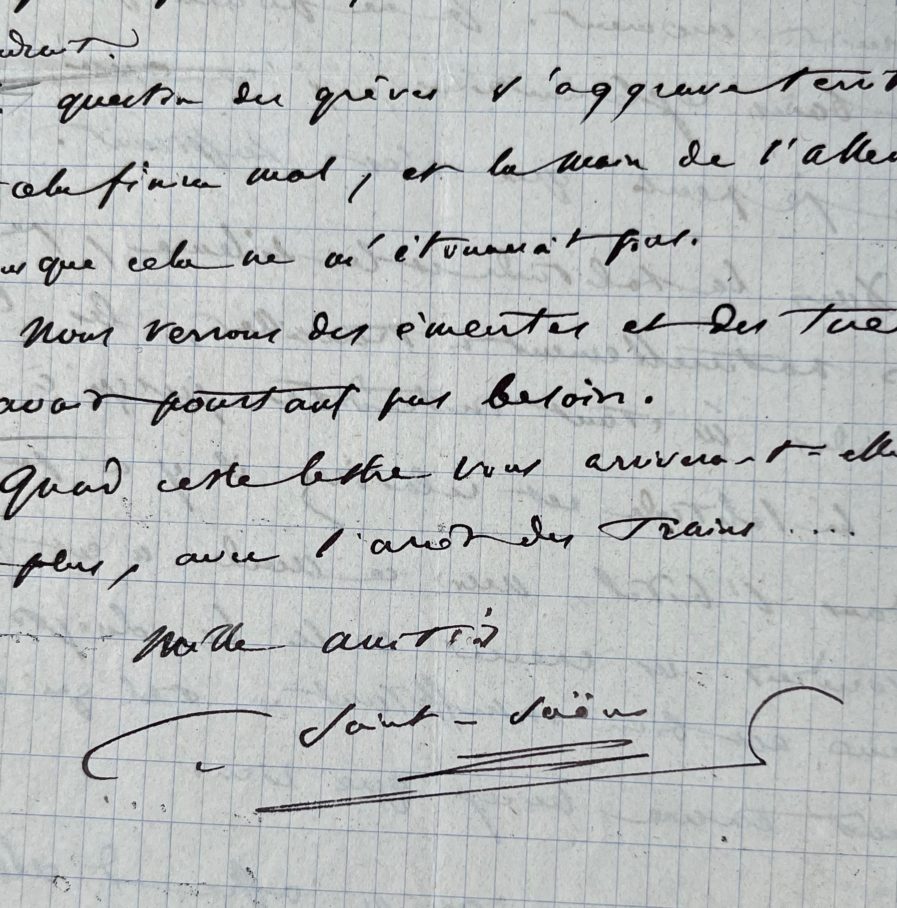 question des grèves s'aggravent et
cela finira mal, et la main de l'Allem
que cela ne m'étonnerait pas.
Nous verrons des émeutes et des tue
avait pourtant pas besoin.
Quand cette lettre vous arrivera-t-elle
plus, avec l'arrêt des trains ....
Mille amitiés
Saint-Saëns